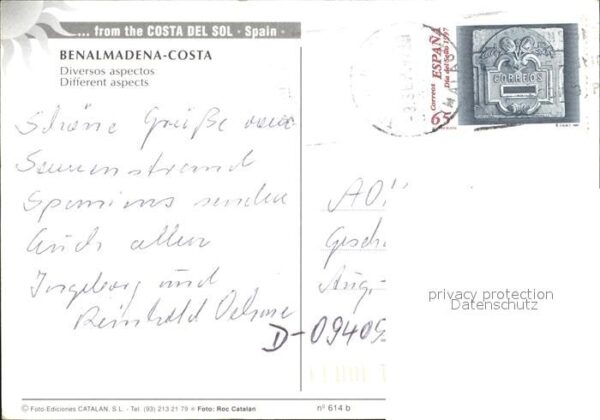 ... from the COSTA DEL SOL · Spain ·
BENALMADENA-COSTA
Diversos aspectos
Different aspects
Schöne Grüße vom
Sonnenstrand
Spaniens senden
Euch allen
Ingeborg und
Reinhold
D-0940
Correos
ESPAÑA
Día del Sello 1997
65
CORREOS
privacy protection
Datenschutz
© Foto-Ediciones CATALÁN, S.L. - Tel (93) 213 21 79 ★ Foto: Roc Catalan
nº 614 b